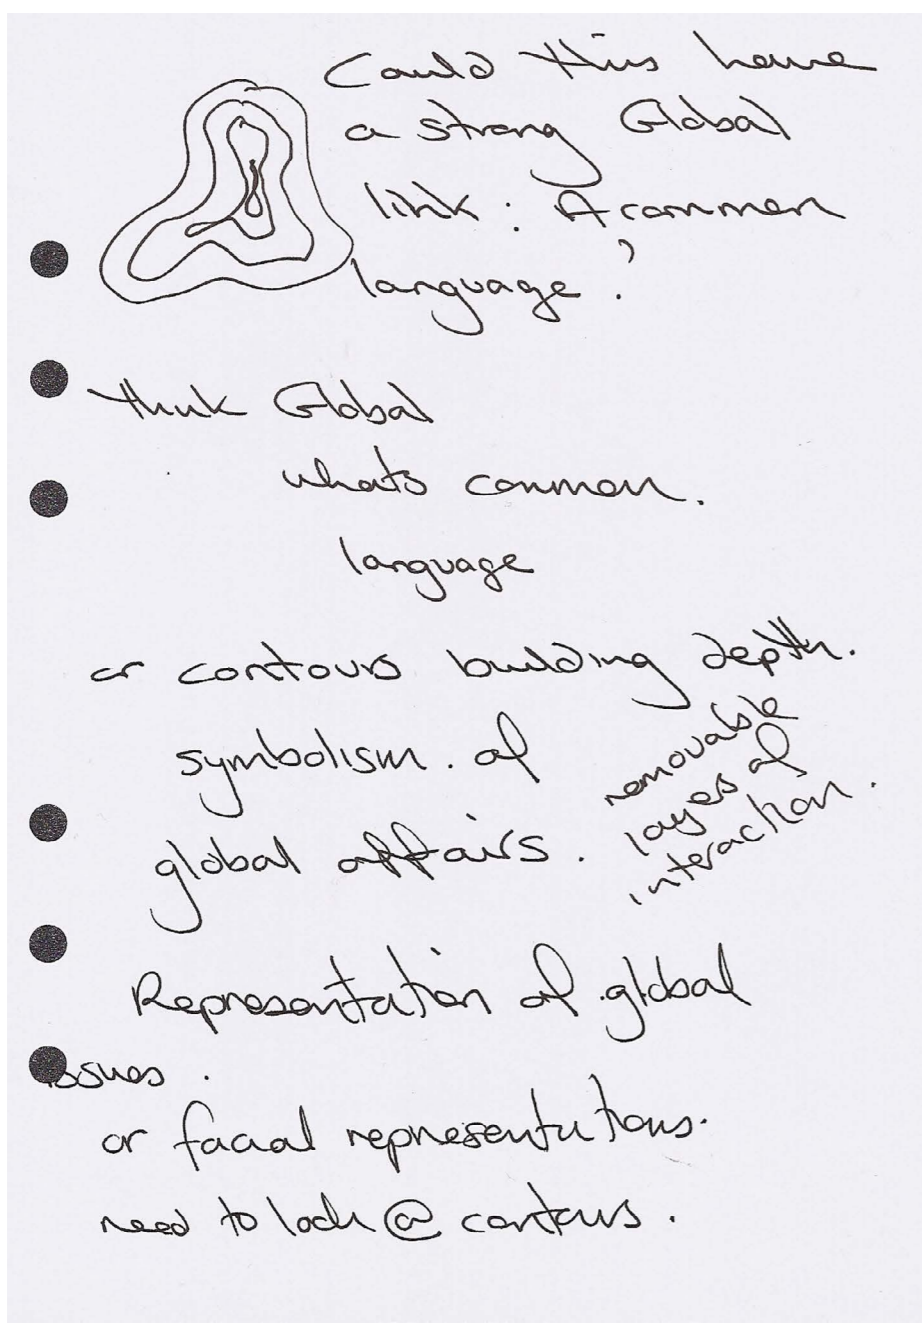 Could this have
a strong Global
link. A common
language?
think Global
whats common.
language
or contours building depth.
symbolism. of
global affairs.
removable
layers of
interaction.
Representation of global
issues.
or facial representations.
need to look @ contours.